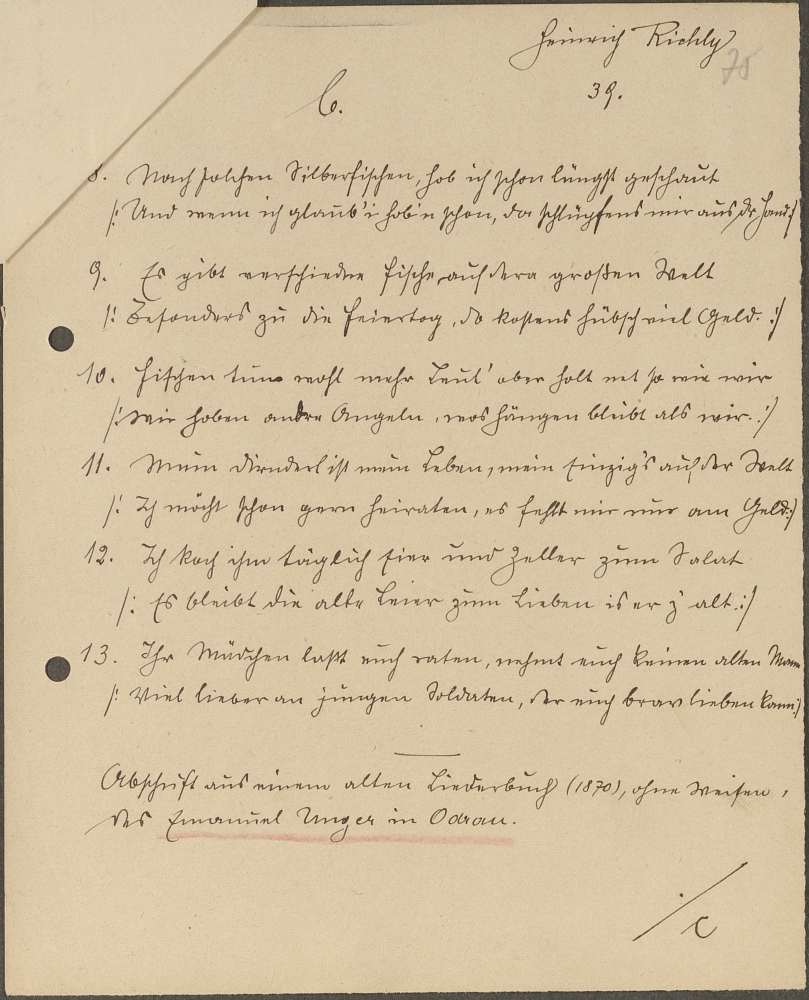 Heinrich Richly
75
6. 39.
8. Nach solchen Silberfischen, hob ich schon längst geschaut
/: Und wenn ich glaub' i hob'n schon, da schlüpfens mir aus dr Hand :/
9. Es gibt verschiedne Fische auf dera großen Welt
/: Besonders zu die Feiertog, do kostens hübsch viel Geld. :/
10. Fischen tun wohl mehr Leut' aber holt net so wie wir
/: Wir hoben andre Angeln, wos hängen bleibt als wir. :/
11. Mein Dirnderl ist mein Leben, mein Einzig's auf der Welt
/: Ich möcht schon gern heiraten, es fehlt mir nur am Geld :/
12. Ich koch ihm täglich Eier und Zeller zum Salat
/: Es bleibt die alte Leier zum Lieben is er z' alt. :/
13. Ihr Mädchen laßt euch raten, nehmt euch keinen alten Mann
/: Viel lieber an jungen Soldaten, der euch brav lieben kann :/
Abschrift aus einem alten Liederbuch (1870), ohne Weisen,
des Emanuel Unger in Odrau.
./c